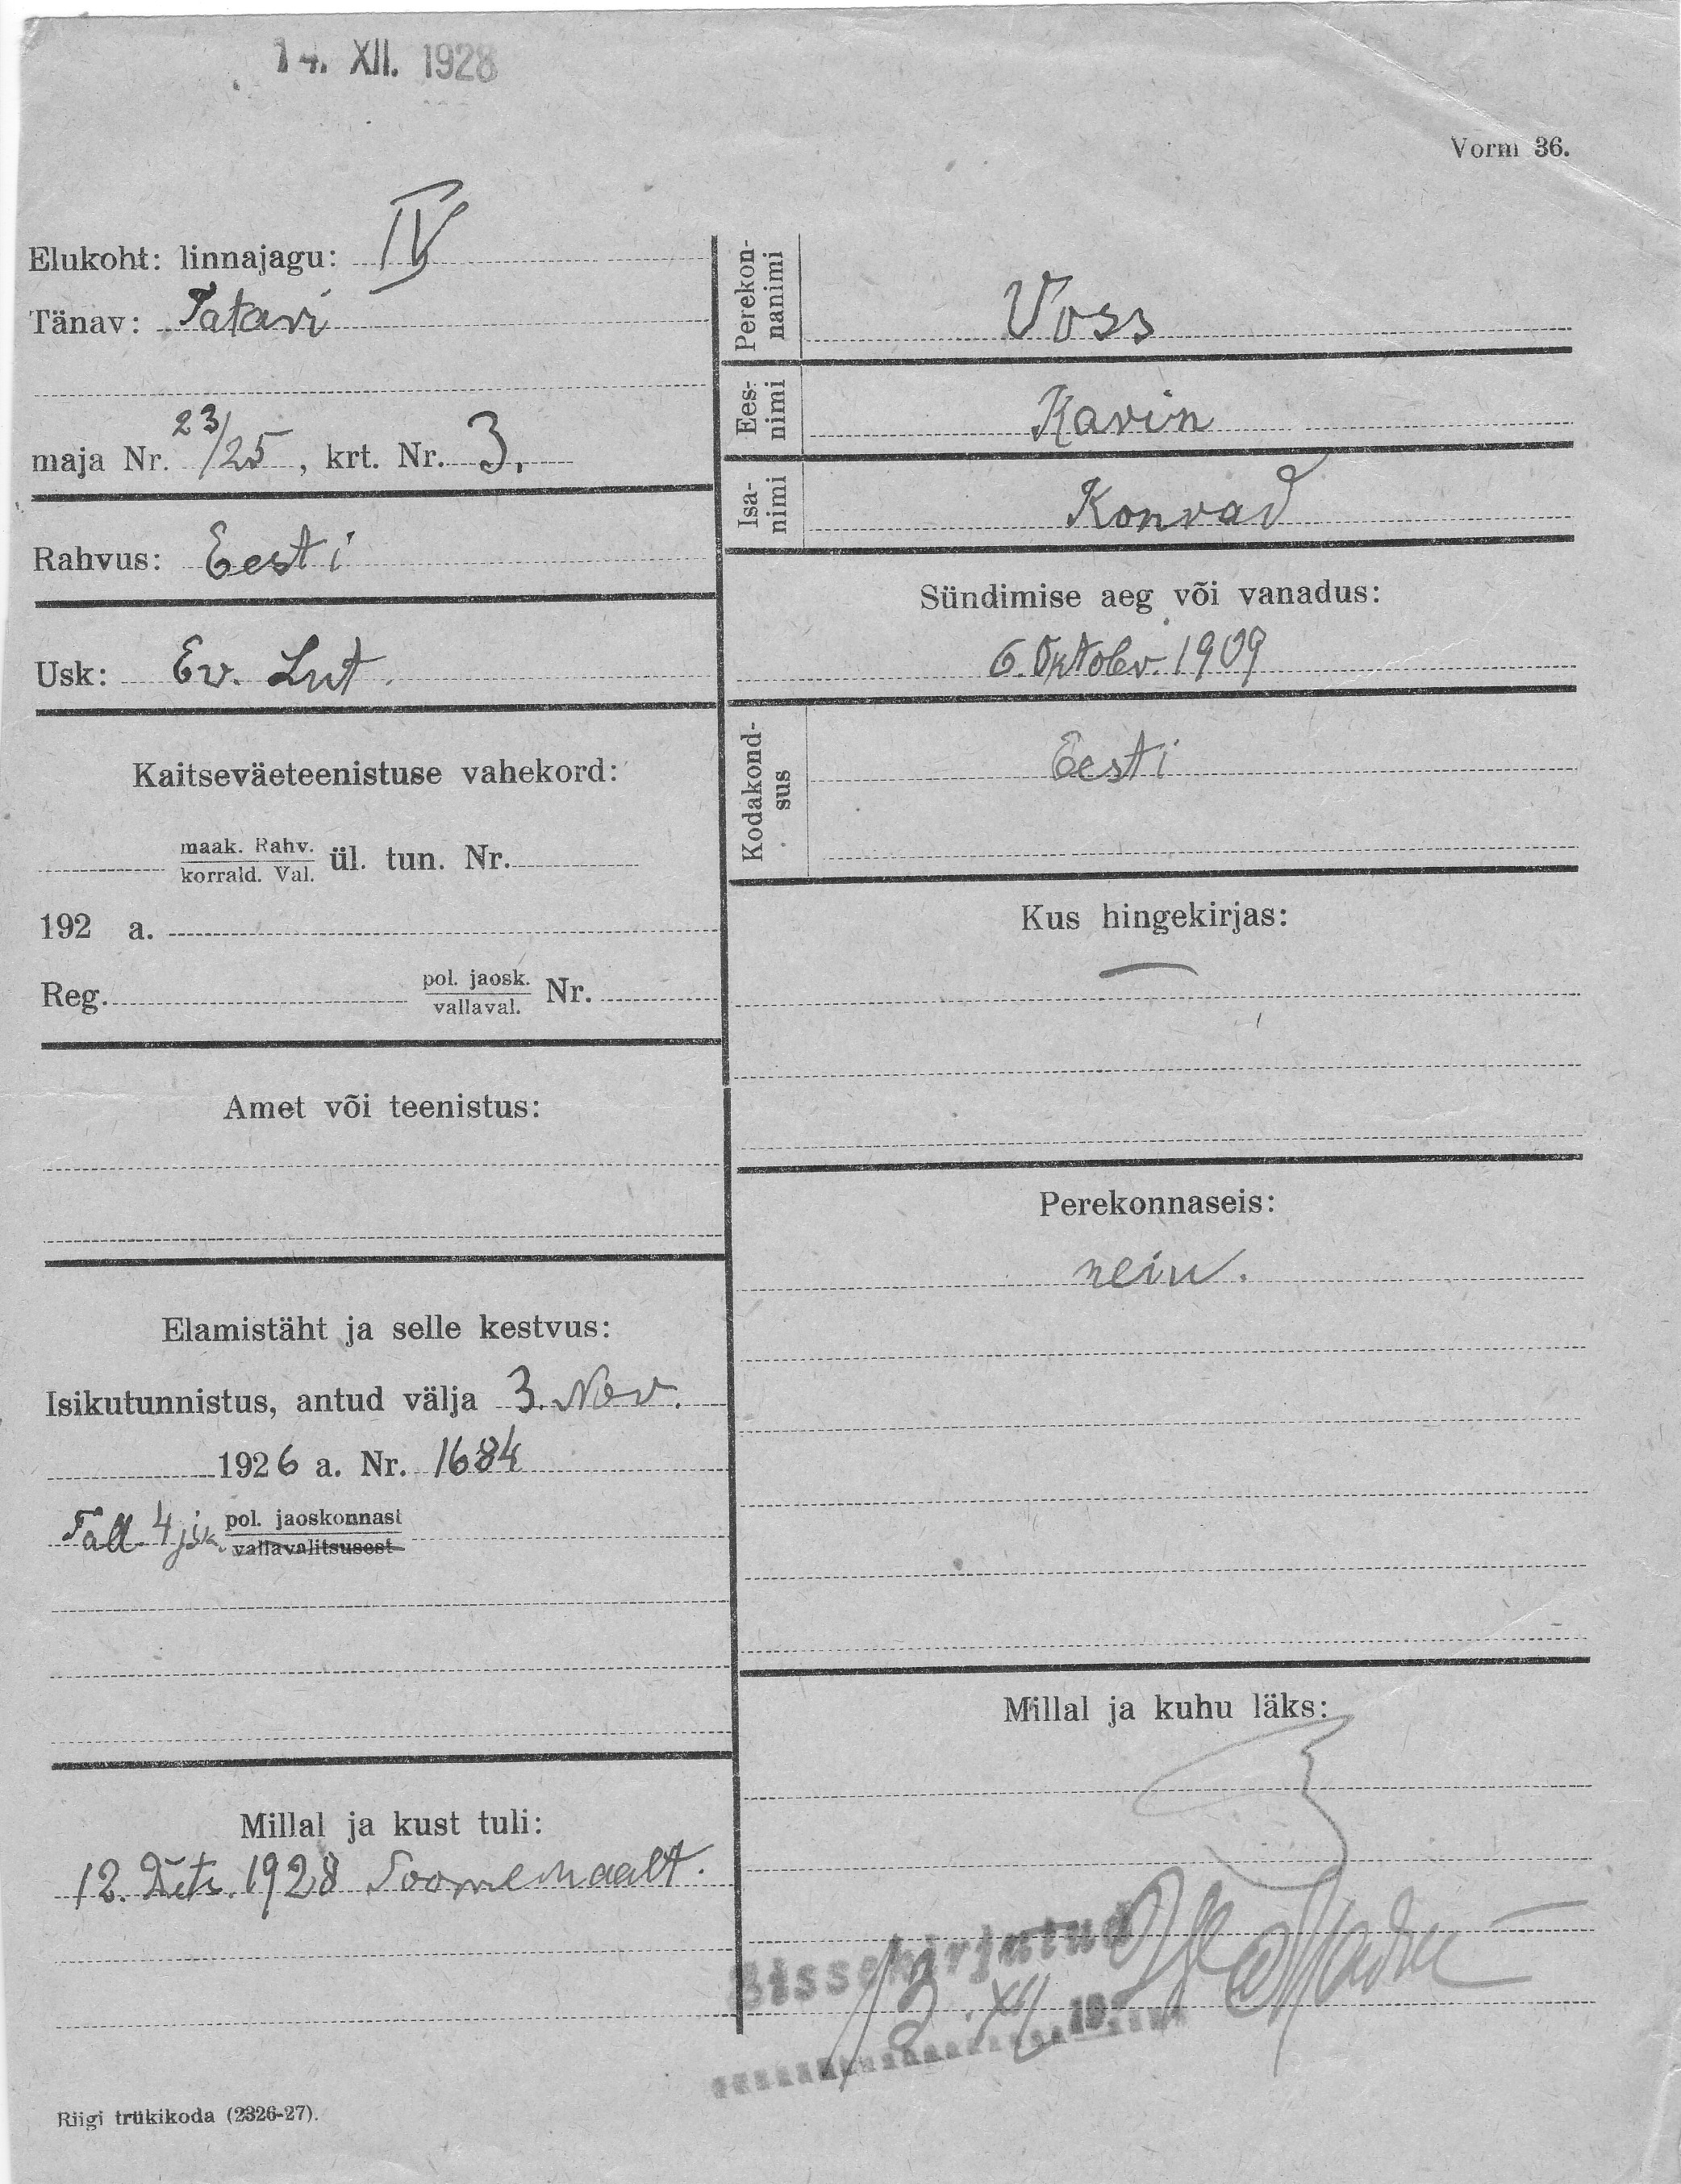 14. XII. 1928
Vorm 36.
Elukoht: linnajagu: IV
Tänav: Tatari
maja Nr. 23/25, krt. Nr. 3.
Rahvus: Eesti
Usk: Ev. Lut.
Kaitseväeteenistuse vahekord:
maak. Rahv.
korrald. Val. ül. tun. Nr.
192 a.
Reg. pol. jaosk. Nr.
vallaval.
Amet või teenistus:
Elamistäht ja selle kestvus:
Isikutunnistus, antud välja 3. Nov.
1926 a. Nr. 1684
Tall. 4 jsk. pol. jaoskonnast
vallavalitsusest
Millal ja kust tuli:
12. Dets. 1928 Soomemaalt.
Perekon-
nanimi
Voss
Ees-
nimi
Karin
Isa-
nimi
Konrad
Sündimise aeg või vanadus:
6. Oktobr. 1909
Kodakond-
sus
Eesti
Kus hingekirjas:
—
Perekonnaseis:
neiu.
Millal ja kuhu läks:
Sissekirjutud
13. XII 192
Riigi trükikoda (2326-27).